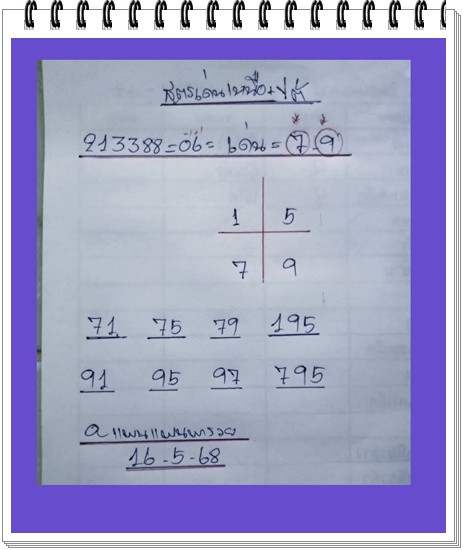 สูตรเด่นเหนือ+ใต้
913388=06= เด่น=7 9
1 5
7 9
71 75 79 195
91 95 97 795
16-5-68